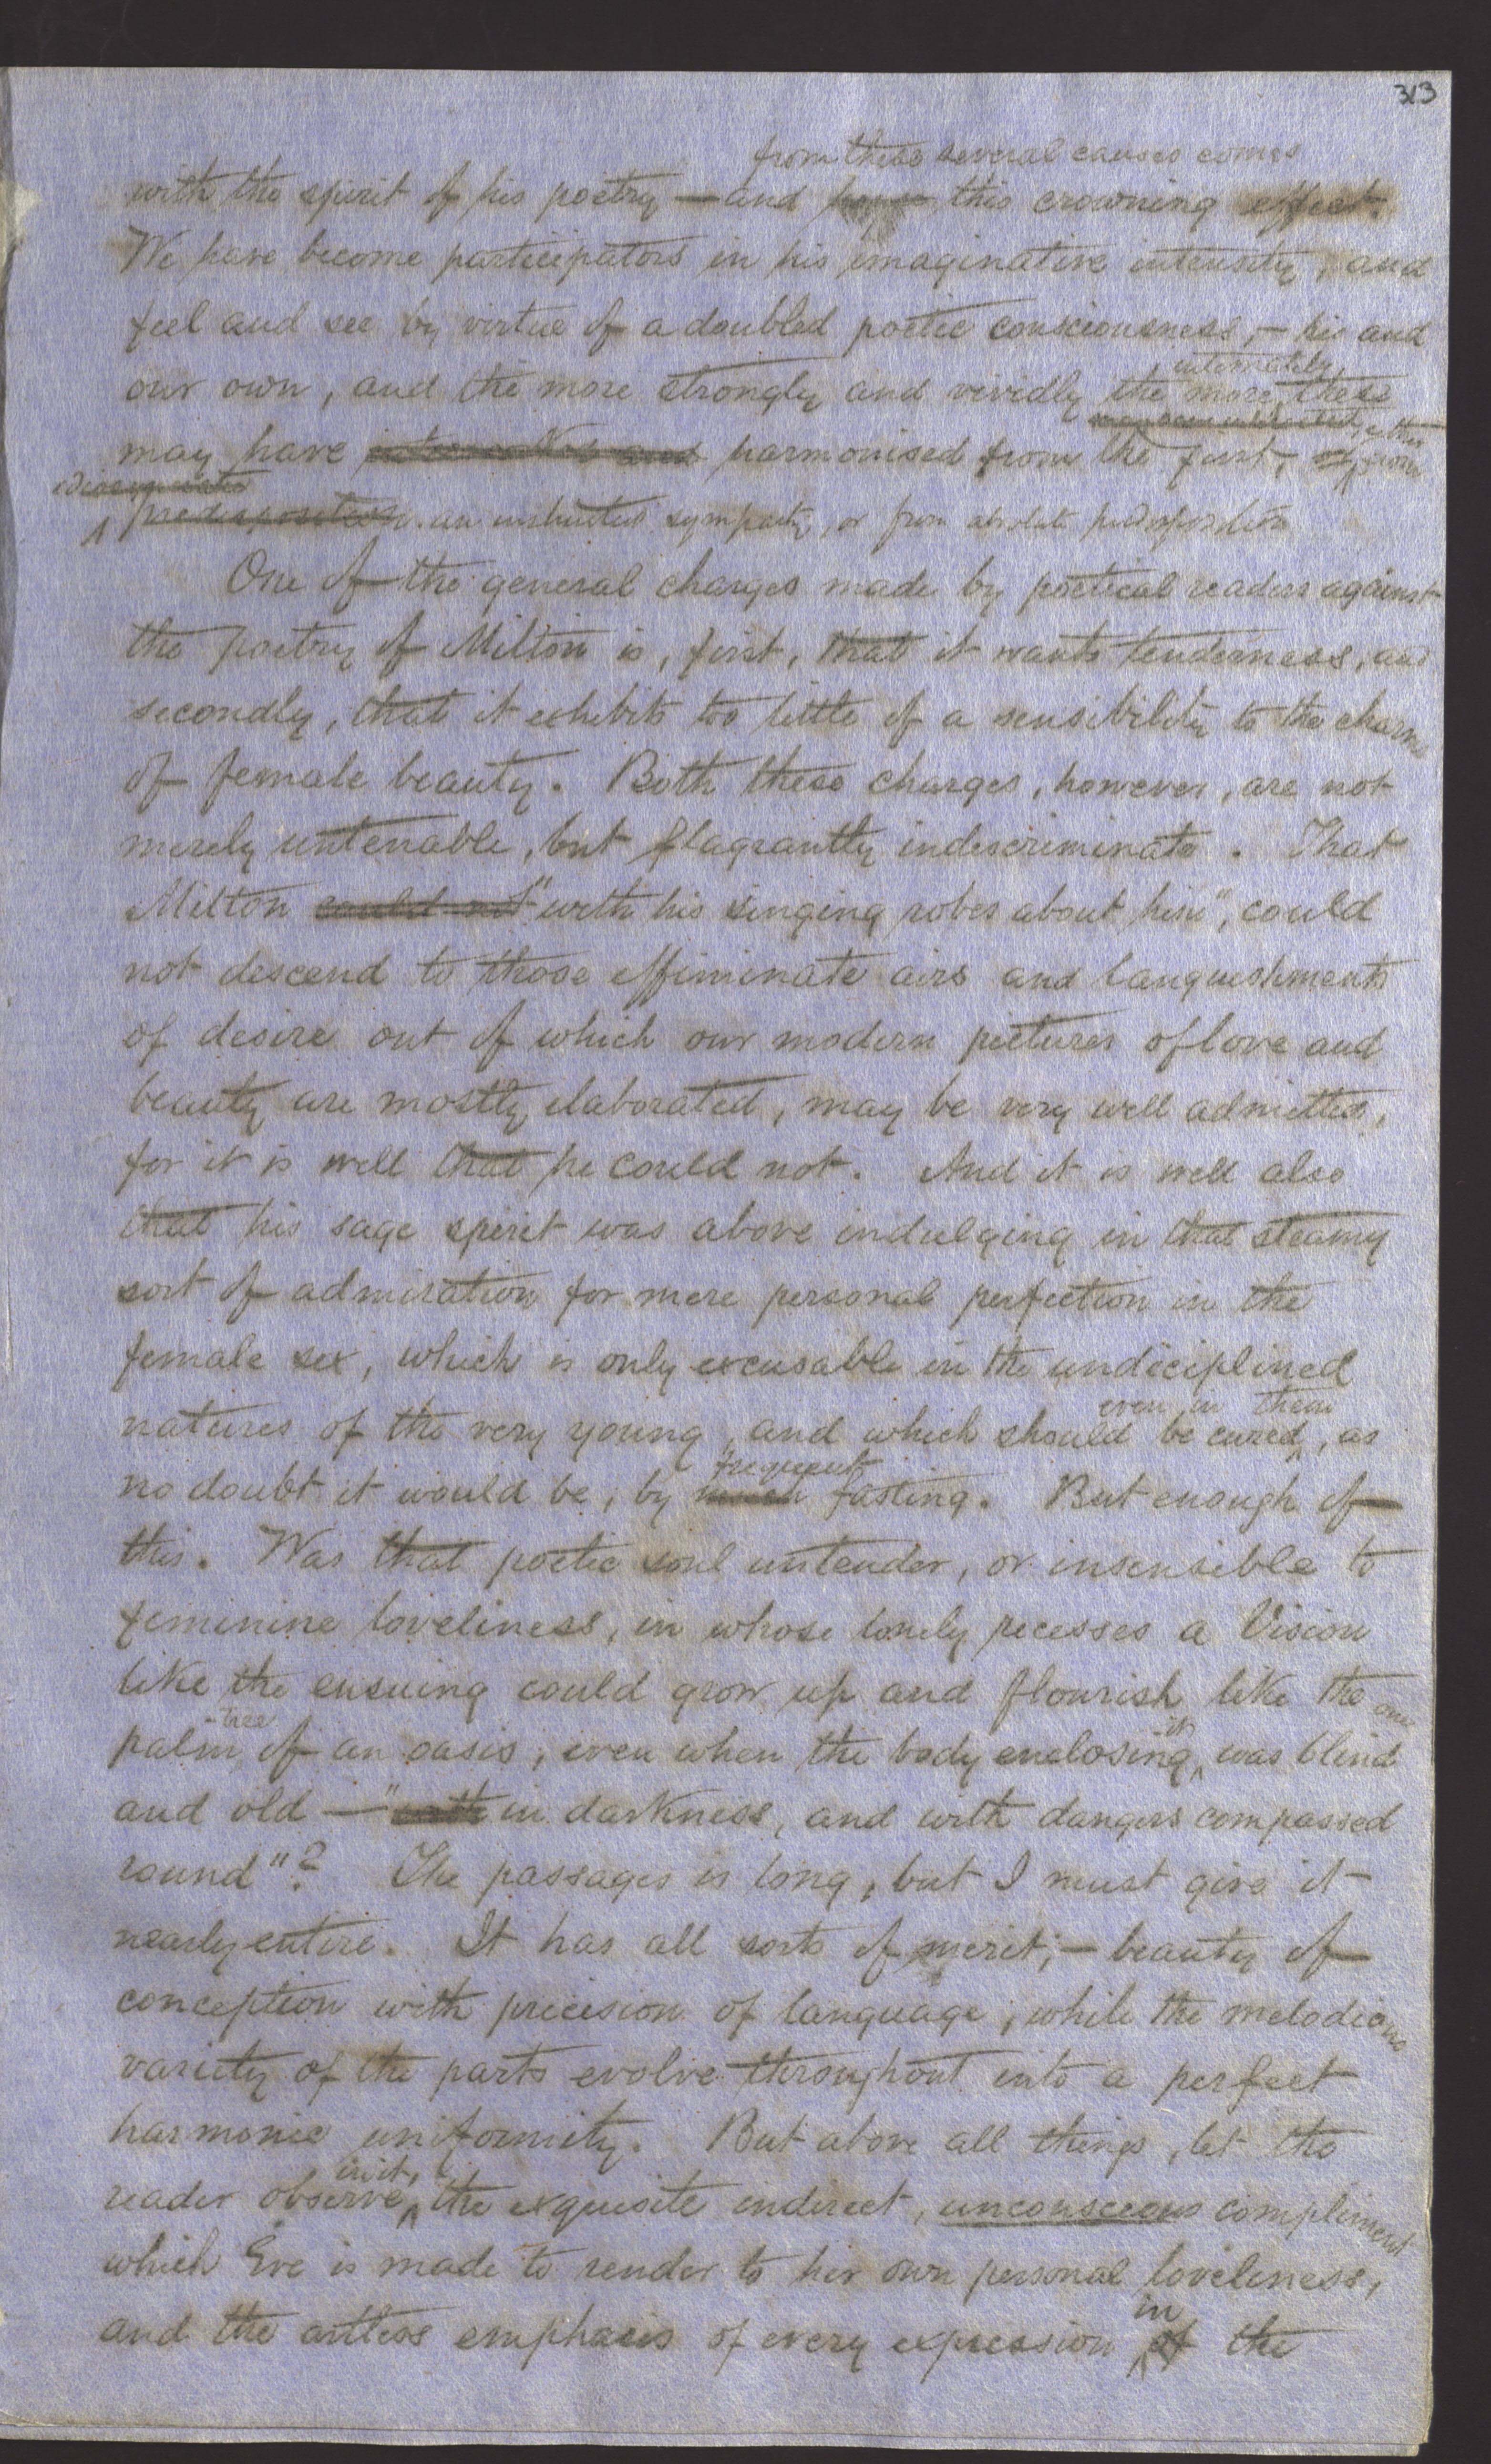 313
from these several causes comes
with the spirit of his poetry — and this crowning effect.
We have become participators in his imaginative intensity, and
feel and see by virtue of a doubled poetic consciousness, — his and
internately,
our own, and the more strongly and vividly the more these
may have harmonised from the first, either from
an instinctive sympathy, or from absolute predisposition
One of the general charges made by poetical readers against
the poetry of Milton is, first, that it wants tenderness, and
secondly, that it exhibits too little of a sensibility to the charms
of female beauty. Both these charges, however, are not
merely untenable, but flagrantly indiscriminate. That
Milton could not "with his singing robes about him", could
not descend to those effiminate airs and languishments
of desire out of which our modern pictures of love and
beauty are mostly elaborated, may be very well admitted,
for it is well that he could not. And it is well also
that his sage spirit was above indulging in that steamy
sort of admiration for mere personal perfection in the
female sex, which is only excusable in the undiciplined
even in them
natures of the very young, and which should be cured, as
frequent
no doubt it would be, by much fasting. But enough of
this. Was that poetic soul untender, or insensible to
feminine loveliness, in whose lonely recesses a Vision
like the ensuing could grow up and flourish like the one
-tree
it
palm of an oasis, even when the body enclosing was blind
and old — "with in darkness, and with dangers compassed
round"? The passages is long, but I must give it
nearly entire. It has all sorts of merit; — beauty of
conception with precision of language; while the melodious
variety of the parts evolve throughout into a perfect
harmonic uniformity. But above all things, let the
in it,
reader observe the exquisite indirect, unconscious compliment
which Eve is made to render to her own personal loveliness,
in
and the artless emphasis of every expression of the